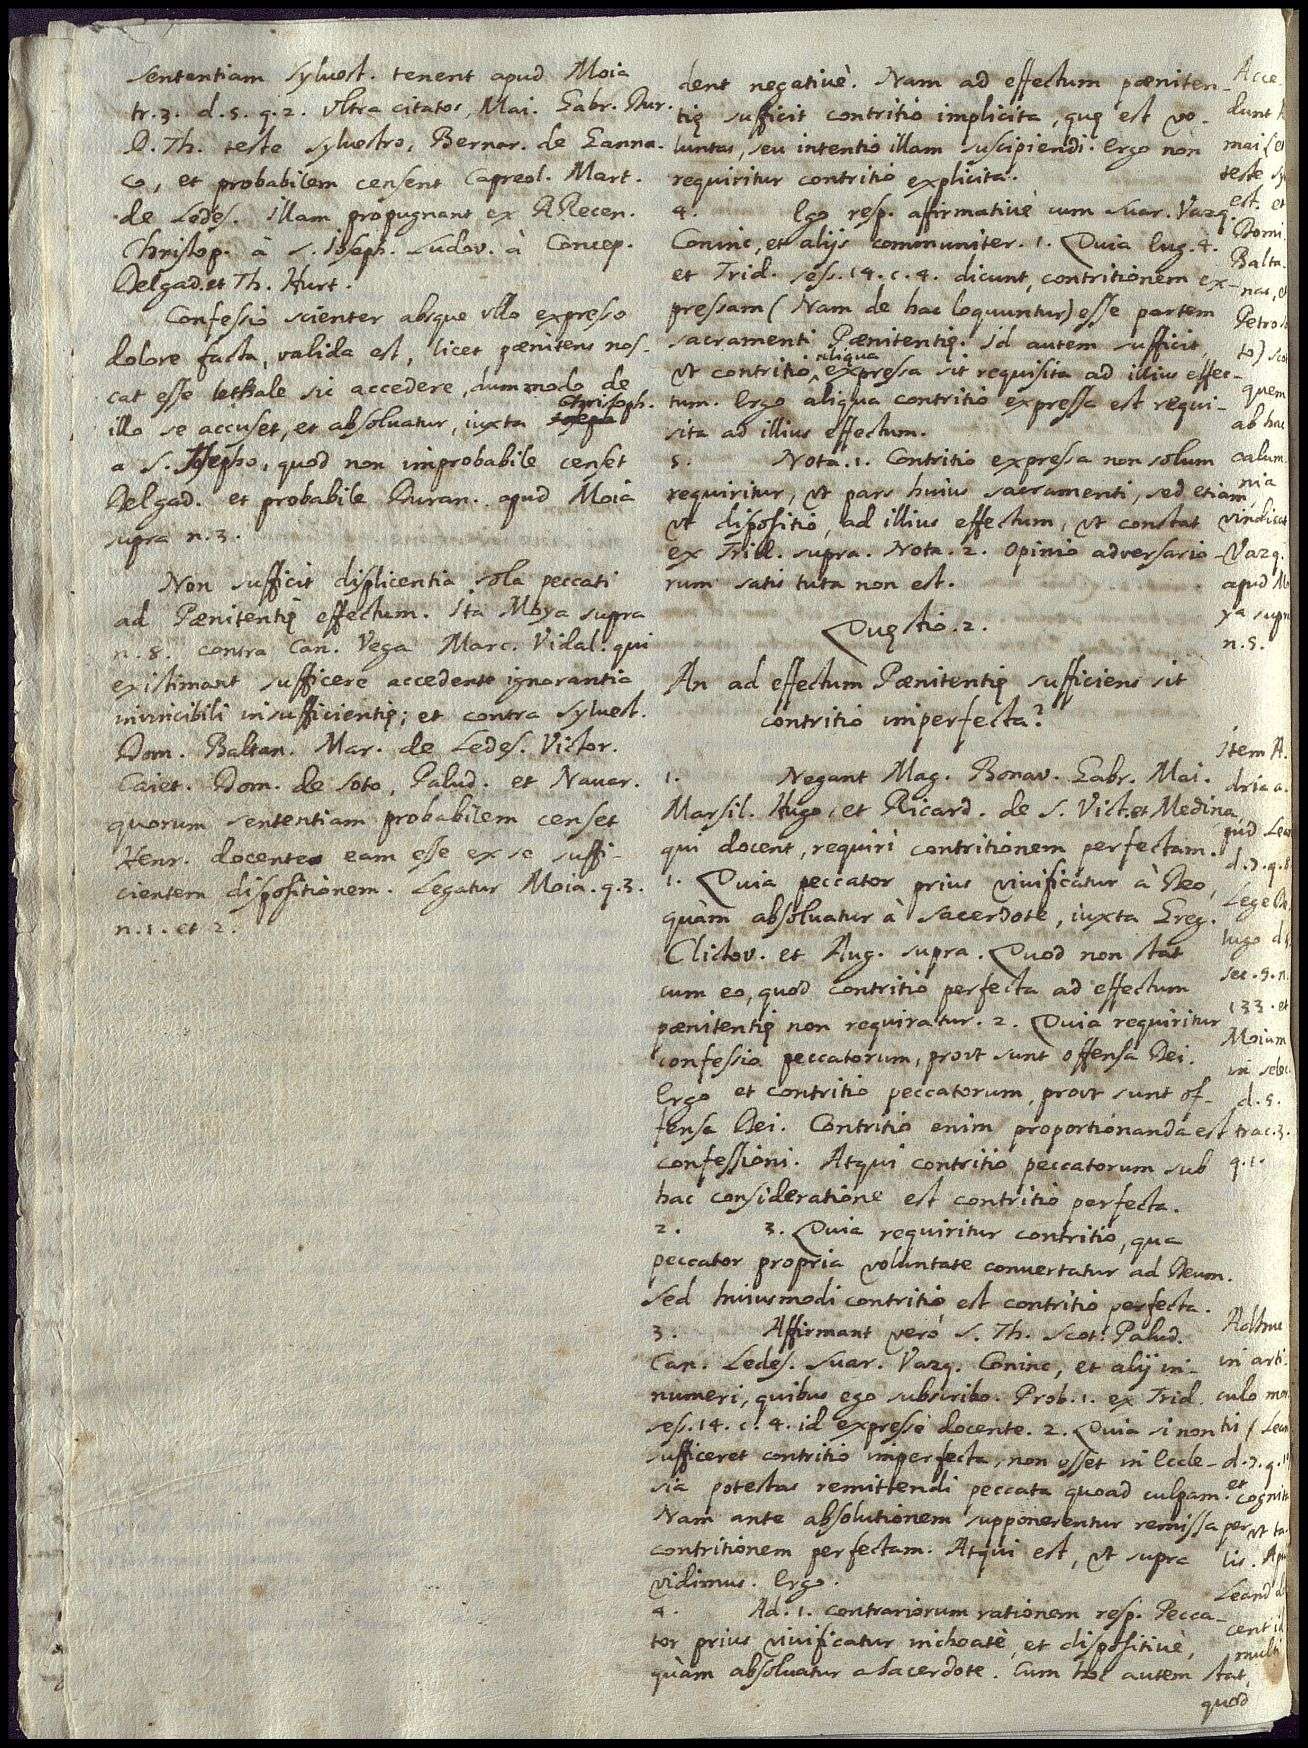 sententiam Sylvest. tenent apud Moia
tr. 3. d. 5. q. 2. ultra citatos, Mai. Gabr. Dur.
D. Th. teste Sylvestro, Bernar. de Ganna-
co, et probabilem censent Capreol. Mart.
de Ledes. illam propugnant ex RRecen.
Christop. à S. Ioseph. Ludov. à Concep.
Delgad. et Th. Hurt.
Confessio scienter absque ullo expresso
dolore facta, valida est, licet pænitens nos-
cat esse lethale sic accedere, dummodo de
illo se accuset, et absoluatur, iuxta Christoph.
a S. Josepho, quod non improbabile censet
Delgad. et probabile Duran. apud Moia
supra n. 3.
Non sufficit displicentia sola peccati
ad Pænitentię effectum. Ita Moya supra
n. 8. contra Can. Vega Marc. Vidal. qui
existimant sufficere accedente ignorantia
invincibili insufficientię; et contra Sylvest.
Dom. Baltan. Mar. de Ledes. Victor.
Caiet. Dom. de Soto, Palud. et Navar.
quorum sententiam probabilem censet
Henr. docentes eam esse ex se suffi-
cientem dispositionem. Legatur Moia. q. 3.
n. 1. et 2.
dent negativè. Nam ad effectum pæniten-
tię sufficit contritio implicita, quę est vo-
luntas, seu intentio illam suscipiendi. Ergo non
requiritur contritio explicita.
4. Ego resp. affirmativè cum Suar. Vazq.
Coninc, et alijs communiter. 1. Quia Eug. 4.
et Trid. ses. 14. c. 4. dicunt, contritionem ex-
pressam (Nam de hac loquuntur) esse partem
sacramenti Pænitentię. Id autem sufficit,
ut contritio aliqua expressa sit requisita ad illius effec-
tum. Ergo aliqua contritio expressa est requi-
sita ad illius effectum.
5. Nota. 1. Contritio expressa non solum
requiritur, ut pars huius sacramenti, sed etiam
ut dispositio ad illius effectum, ut constat
ex Trid. supra. Nota. 2. Opinio adversario-
rum satis tuta non est.
Quęstio. 2.
An ad effectum Pænitentię sufficiens sit
contritio imperfecta?
1. Negant Mag. Bonav. Gabr. Mai.
Marsil. Hugo, et Ricard. de S. Vict. et Medina,
qui docent, requiri contritionem perfectam.
1. Quia peccator prius vivificatur à Deo,
quàm absoluatur à sacerdote, iuxta Greg.
Clictov. et Aug. supra. Quod non stat
cum eo, quod contritio perfecta ad effectum
pænitentię non requiratur. 2. Quia requiritur
confessio peccatorum, prout sunt offensa Dei.
Ergo et contritio peccatorum, prout sunt of-
fensa Dei. Contritio enim proportionanda est
confessioni. Atqui contritio peccatorum sub
hac consideratione est contritio perfecta.
2. 3. Quia requiritur contritio, qua
peccator propria voluntate convertatur ad Deum.
Sed huiusmodi contritio est contritio perfecta.
3. Affirmant verò S. Th. Scot. Palud.
Can. Ledes. Suar. Vazq. Coninc, et alij in-
numeri, quibus ego subscribo. Prob. 1. ex Trid.
ses. 14. c. 4. id expressè docente. 2. Quia si non
sufficeret contritio imperfecta, non esset in Eccle-
sia potestas remittendi peccata quoad culpam.
Nam ante absolutionem supponerentur remissa per
contritionem perfectam. Atqui est, ut supra
vidimus. Ergo.
4. Ad. 1. contrariorum rationem resp. Pecca-
tor prius vivificatur inchoatè, et dispositivè,
quàm absoluatur a sacerdote. Cum hoc autem stat,
quod
Acce
dunt
mai
teste
est, et
Domi
Balta
nas, et
Petro
to)
quem
ab hac
calum
nia
vindicat
Vazq.
apud Mo
ya supra
n. 5.
Item A.
dria a
pud Lean
d. 7. q. 8
Lege
lugo d.
sec. 9. n.
133. et
Moium
in selec
d. 5.
trac. 3.
q. 1.
Adhuc
in arti
culo mor
tis (Lean
d. 7. q.
et
cognita
ut ta
lis. Apu
Leand
cent id
multi